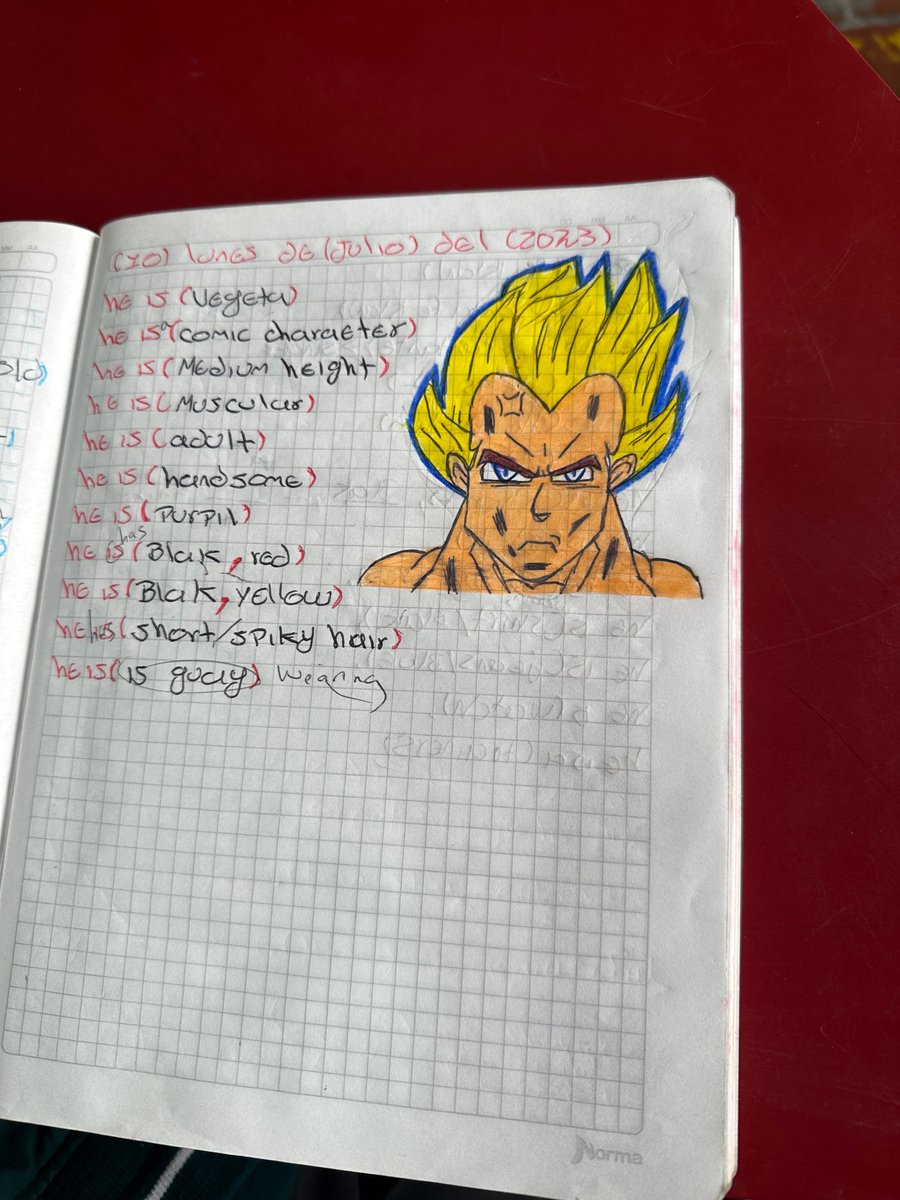 (10) lunes de (Julio) del (2023)
he is (Vegeta)
he is a (comic character)
he is (Medium height)
he is (Muscular)
he is (adult)
he is (handsome)
he is (Purpil)
he is has (Blak, red)
he is (Blak, yellow)
he has (short/spiky hair)
he is (is guay) wearing
Norma